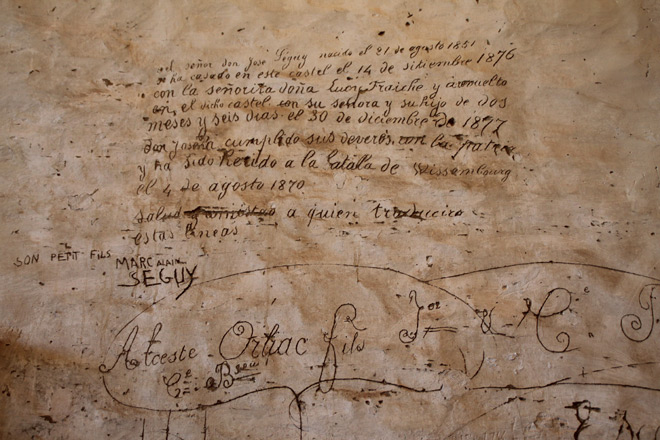 el señor don José Seguy nacido el 21 de agosto 1851
se ha casado en este castel el 14 de sitiembre 1876
con la señorita doña Fraiche y a
en el dicho castel con su señora y su hijo de dos
meses y seis dias el 30 de diciembre de 1877
don José ha cumplido sus deveres con la
y ha sido herido a la de Wissambourg
el 4 de agosto 1870
salud a quien traducira
estas lineas
SON PETIT FILS MARC ALAIN
SEGUY
Alceste Ortiac fils